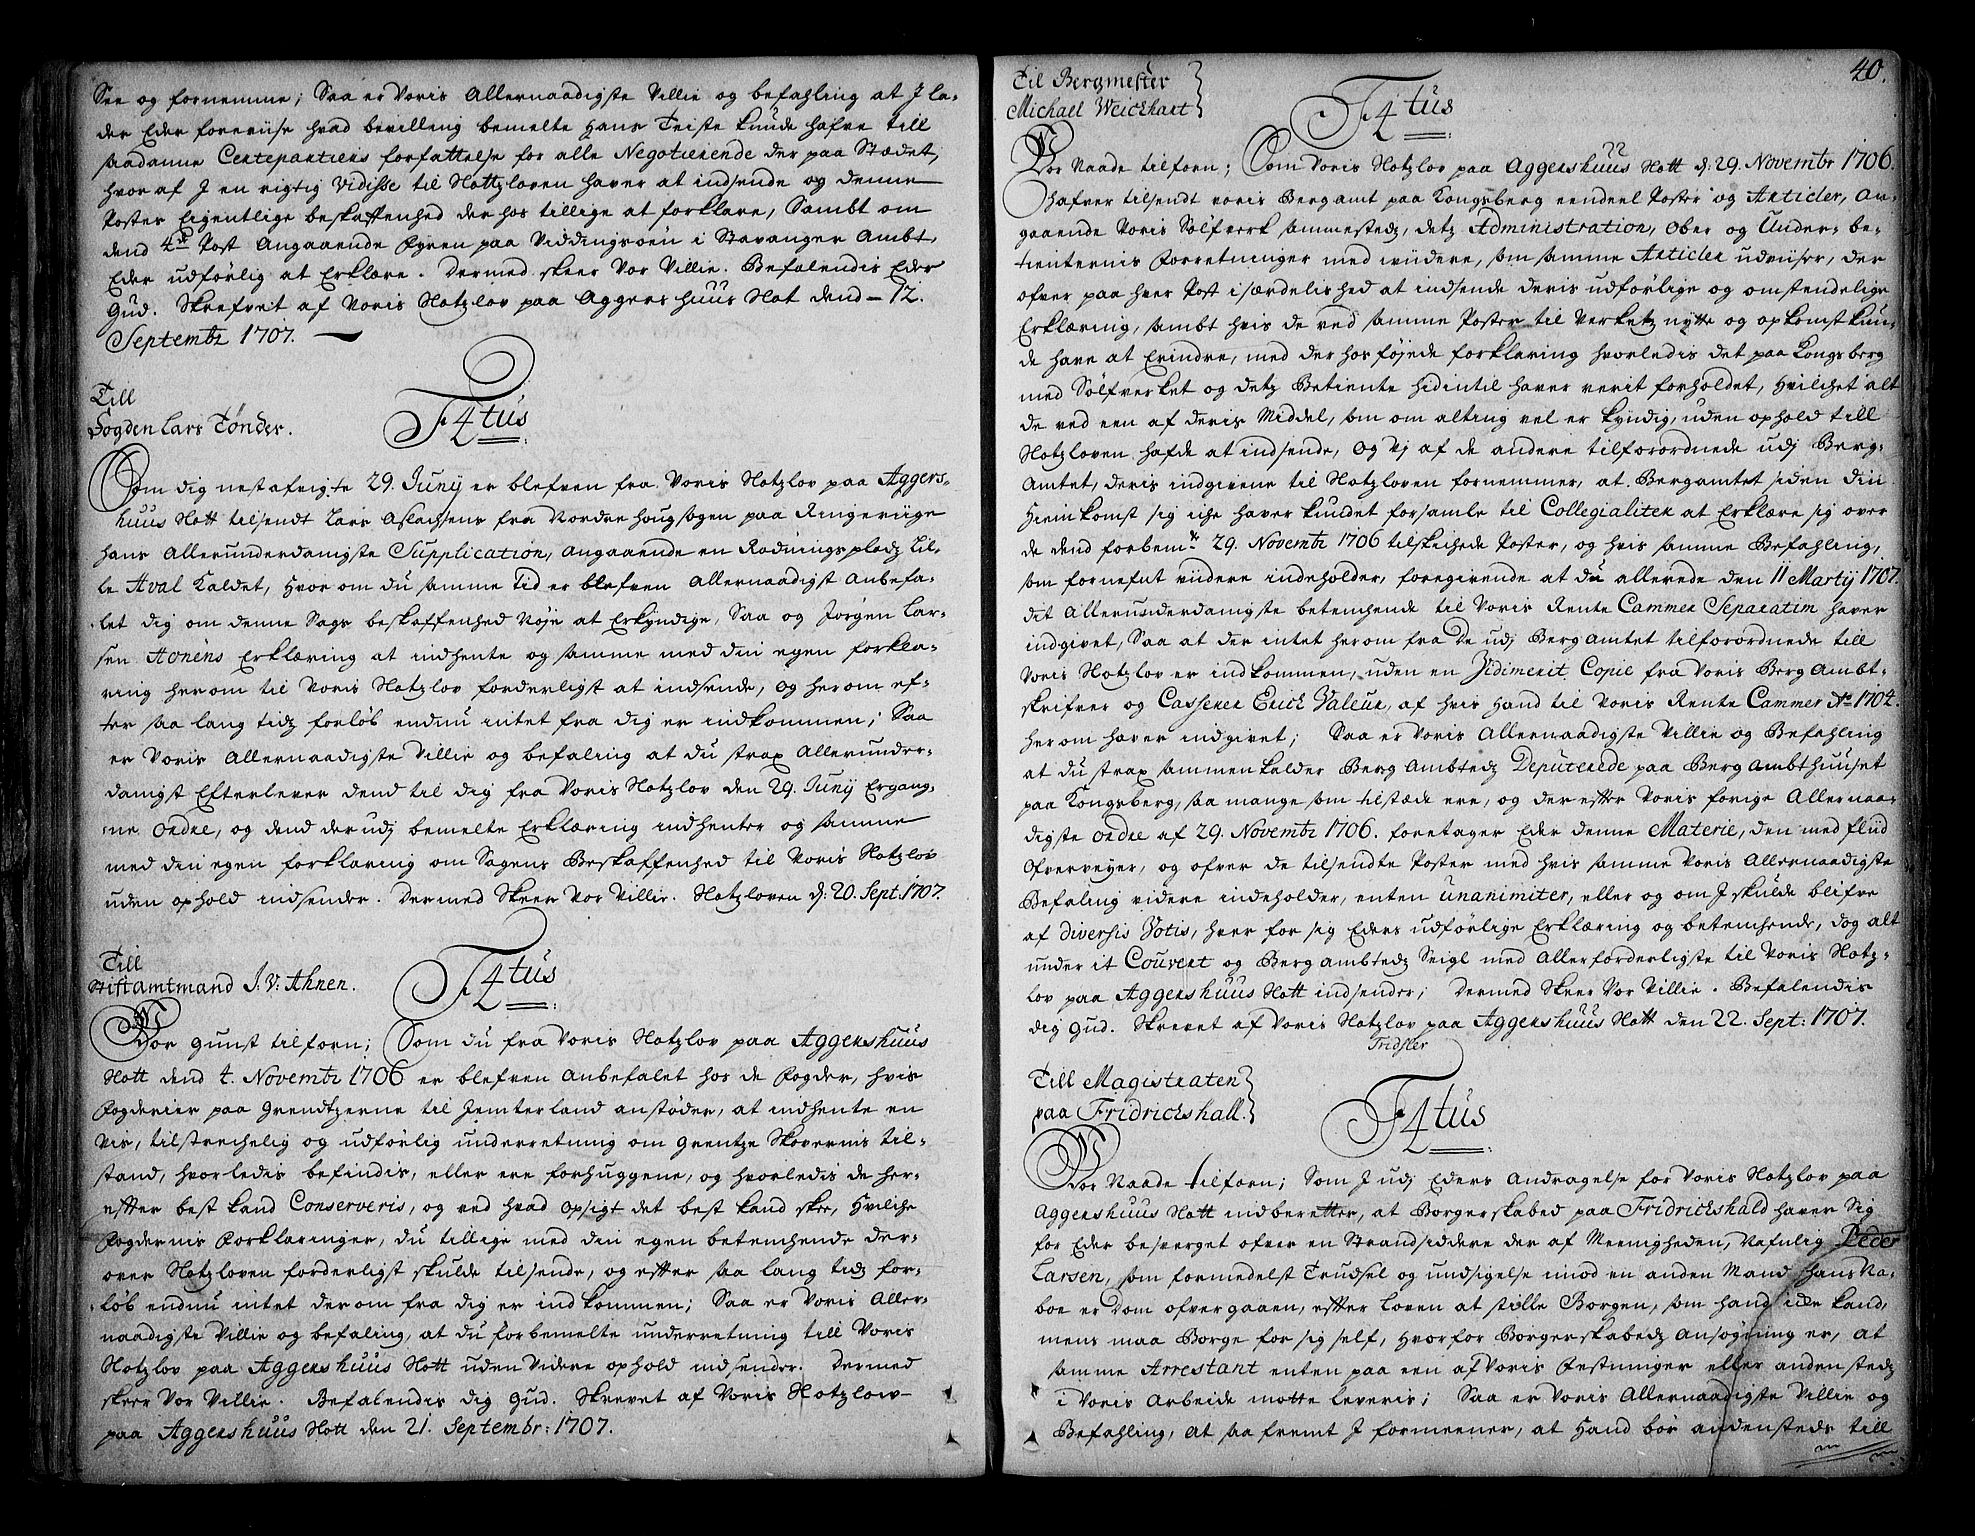 See og fornemme; Saa er Voris Allernaadigste Villie og befahling at J la-
der Eder foreviise hvad bevilling bemelte Hans Friste kunde hafve till
saadanne Centepantiens forfattelse for alle Negotierende der paa Stædet,
hvoraf J en rigtig Vidisse til Slottzloven haver at indsende og denne
Postes Eigentlige beskaffenhed der hos tillige at forklare, Sambt om
dend 4de Post Angaaende Fyren paa Viddingsøen i Stavanger Ambt,
Eder udførlig at Erklære. Dermed skeer Vor Villie. Befalendis Eder
Gud. Skrefvet af Voris Slotzlov paa Aggershuus Slot dend 12.
Septembr 1707.
Till
Fogden Lars Tønder.
F4tus
Som dig nest afvigte 29. Junij er blefven fra Voris Slotzlov paa Aggers-
huus Slott tilsendt Lars Aslachsens fra Nordrehougsogen paa Ringeriige
hans Allerunderdanigste Supplication, angaaende en Rødningsplads Lil-
le Aval kaldet, hvor om du samme tid er blefven Allernaadigst anbefa-
let dig om denne Sags beskaffenhed nøje at Erkyndige, Saa og Jørgen Lar-
sen Aonens Erklæring at indhente og samme med din egen forkla-
ring herom til Voris Slotzlov forderligst at indsende, og herom ef-
ter saa lang tidz forløb endnu intet fra dig er indkommen; Saa
er Voris Allernaadigste Villie og befaling at du strax Allerunder-
danigst Efterlever dend til dig fra Voris Slotzlov den 29. Junij Ergang-
ne Ordre, og dend derudj bemelte Erklæring indhenter og samme
med din egen forklaring om Sagens Beskaffenhed til Voris Slotzlov
uden ophold indsender. Dermed Skeer Vor Villie. Slotzloven d: 20. Sept. 1707.
Till
Stiftamtmand J. V: Ahnen.
F4tus
Vor gunst tilforn; Som du fra Voris Slotzlov paa Aggershuus
Slott dend 4. Novembr 1706 er blefven anbefalet hos de Fogder, hvis
Fogderier paa Grendtzerne til Jemterland anstøder, at indhente en
vis, tilstrechelig og udførlig underretning om Grentze Skovernis til-
stand, hvorledis befindis, eller ere forhuggene, og hvorledis de her-
effter best kand Conserveris, og ved hvad opsigt det best kand skee, Hvilche
Fogdernis Forklaringer, du tillige med din egen betenchende der-
over Slotzloven forderligst skulde tilsende, og effter saa lang tidz for-
løb endnu intet derom fra dig er indkommen; Saa er Voris Aller-
naadigste Villie og befaling, at du forbemelte underretning till Voris
Slotzlov paa Aggershuus Slott uden Videre ophold indsender. Dermed
skeer Vor Villie. Befalendis dig Gud. Skrevet af Voris Slotzlow
paa Aggershuus Slott den 21. Septembr: 1707.
40.
Til Bergmester
Michael Weickhart
F4tus
Vor Naade tilforn; Som Voris Slotzlov paa Aggershuus Slott d: 29. Novembr 1706.
hafver tilsendt voris Bergamt paa Kongsberg eendeel Poster og Articler, an-
gaaende Voris Sølfverk sammestedz, detz Administration, Ober og Under-be-
tienternis Forretninger med viidere, som samme Articler udviiser, der
ofver paa hver Post i særdelished at indsende deris udførlige og omstendelige
Erklæring, sambt hvis de ved samme Poster til Verketz nytte og opkomst kun-
de have at Erindre, med derhos føjede forklaring hvorledis det paa Kongsberg
med Sølfverket og detz Betiente hidintil haver verit forholdet, hvilchet alt
de ved een af deris Middel, som om alting vel er kyndig, uden ophold till
Slotzloven hafde at indsende, og Vj af de andere tilforordnede udj Berg-
Amtet, deris indgivene til Slotzloven fornemmer, at Bergamtet siden din
hiemkomst sig iche haver kundet forsamle til Collegialiter at Erklære sig over
de dend forbemte 29. Novembr 1706 tilskichede Poster, og hvis samme Befahling,
som fornefnt viidere indeholder, foregivende at du allerede den 11 Martij 1707.
dit Allerunderdanigste betenchende til Voris Rente Cammer Separatim haver
indgivet, Saa at der intet herom fra De udj Bergamtet tilforordnede till
Voris Slotzlov er indkommen, uden en Vidimerit Copie fra Voris Berg Ambt-
skrifver og Casserer Erich Valeur, af hvis Hand til Voris Rente Cammer Ao 1704.
herom haver indgivet; Saa er Voris Allernaadigste Villie og Befahling
at du strax sammenkalder Berg Ambtedz Deputerede paa Berg Ambthuuset
paa Kongsberg, saa mange som tilstæde ere, og der effter Voris forige Allernaa-
digste Ordre af 29. Novembr 1706. foretager Eder denne Materie, den med fliid
Ofverveyer, og ofver de tilsendte Poster med hvis samme Voris Allernaadigste
Befaling videre indeholder, enten Unanimiter, eller og om J skulde blifve
af diversis Votis, hver for sig Eders udførlige Erklæring og betenchende, dog alt
under it Couvert og Berg Ambtedz Seigl med Allerforderligste til Voris Slotz-
lov paa Aggershuus Slott indsender; Dermed Skeer Vor Villie. Befalendis
dig Gud. Skrevet af Voris Slotzlov paa Aggershuus Slott den 22. Sept: 1707.
Till Magistraten
paa Fridrichshall.
F4tus
Vor Naade tilforn; Som J udj Eders Andragelse for Voris Slotzlov paa
Aggershuus Slott indberetter, at Borgerskabed paa Fridrichshald haver Sig
for Eder besverget ofver en Strandsiddere der af Meenigheden, Nafnlig Peder
Larsen, som formedelst Trudsel og undsigelse imod en anden Mand hans Na-
boe er Dom ofvergaaen, effter Loven at stille Borgen, som hand icke kand,
mens maa Borge for sig self, hvorfor Borgerskabedz ansøgning er, at
samme Arrestant enten paa een af Voris Festninger eller andenstedz
i Voris Arbeide motte leveris; Saa er Voris Allernaadigste Villie og
Befahling, at saa fremt J formeener, at Hand bør andensteds till